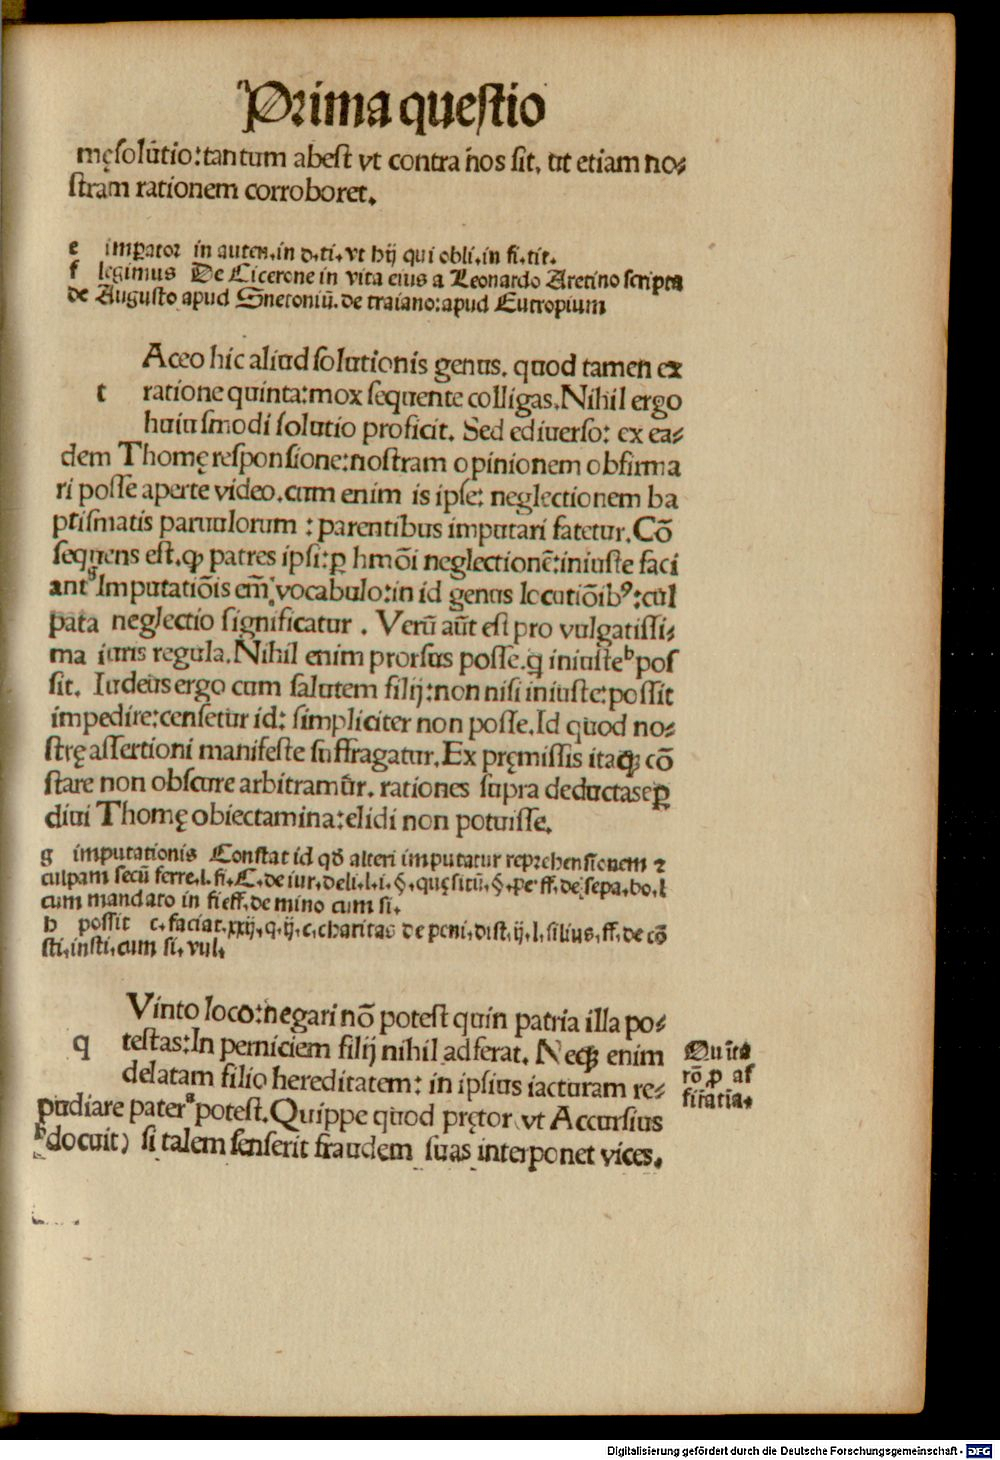 Prima questio
męsolũtio:tantum abest vt contra nos sit, ut etiam no⸗
stram rationem corroboret.
e imꝑator in auten.in d.ti.vt hij qui obli.in fi.tit.
f legimus De Cicerone in vita eius a Leonardo Aretino scripta
de Augusto apud Snetoniũ.de traiano:apud Eutropium
Aceo hic aliud solutionis genus. quod tamen ex
t ratione quinta:mox sequente colligas.Nihil ergo
huiusmodi solutio proficit. Sed ediuerso: ex ea⸗
dem Thomę responsione:nostram opinionem obfirma
ri posse aperte video.cum enim is ipse: neglectionem ba
ptismatis paruulorum : parentibus imputari fatetur.Cõ
sequens est.ꝙ patres ipsi:ꝑ hmõi neglectionẽ:iniuste faci
antᵍImputatiõis em̃:vocabulo:in id genus locutiõibꝰ:cul
pata neglectio significatur . Verũ aũt est pro vulgatissi⸗
ma iuris regula.Nihil enim prorsus posse.q iniusteᵇpos
sit. Iudeus ergo cum salutem filij:non nisi iniuste:possit
impedire:censetur id: simpliciter non posse.Id quod no⸗
strę assertioni manifeste suffragatur.Ex pręmissis itaqꝫ cõ
stare non obscure arbitramur̃. rationes supra deductas eꝑ
diui Thomę obiectamina:elidi non potuisse.
g imputationis Constat id qđ alteri imputatur reprehensionem ⁊
culpam secũ ferre.l.fi.C.de iur.deli.l.i.§.quęsitũ.§.pe.ff.de sepa.bo.l
cum mandato in fi.ff.de mino cum si.
h possit c.faciat.xxij.q.ij.c.charitas de peni.dist.ij.l.filius.ff.de cõ
sti.insti.cum si.vul.
Vinto loco:negari nõ potest quin patria illa po⸗
q testas:In perniciem filij nihil adferat. Neqꝫ enim
delatam filio hereditatem: in ipsius iacturam re⸗
pudiare paterᵃpotest.Quippe quod prętor vt Accursius
ᵇdocuit) si talem senserit fraudem suas interponet vices.
Quĩta
rõ ꝓ af
firatĩa.
Digitalisierung gefördert durch die Deutsche Forschungsgemeinschaft - DFG